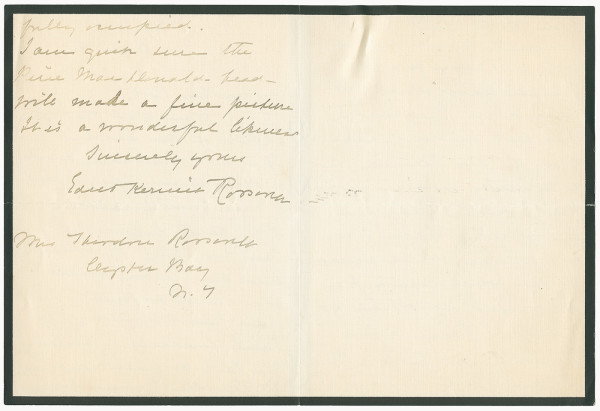 fully occupied.
I am quite sure the
Pirie MacDonald head
will make a fine picture
It is a wonderful likeness
Sincerely yours
Edith Kermit Roosevelt
Mrs Theodore Roosevelt
Oyster Bay
N. Y